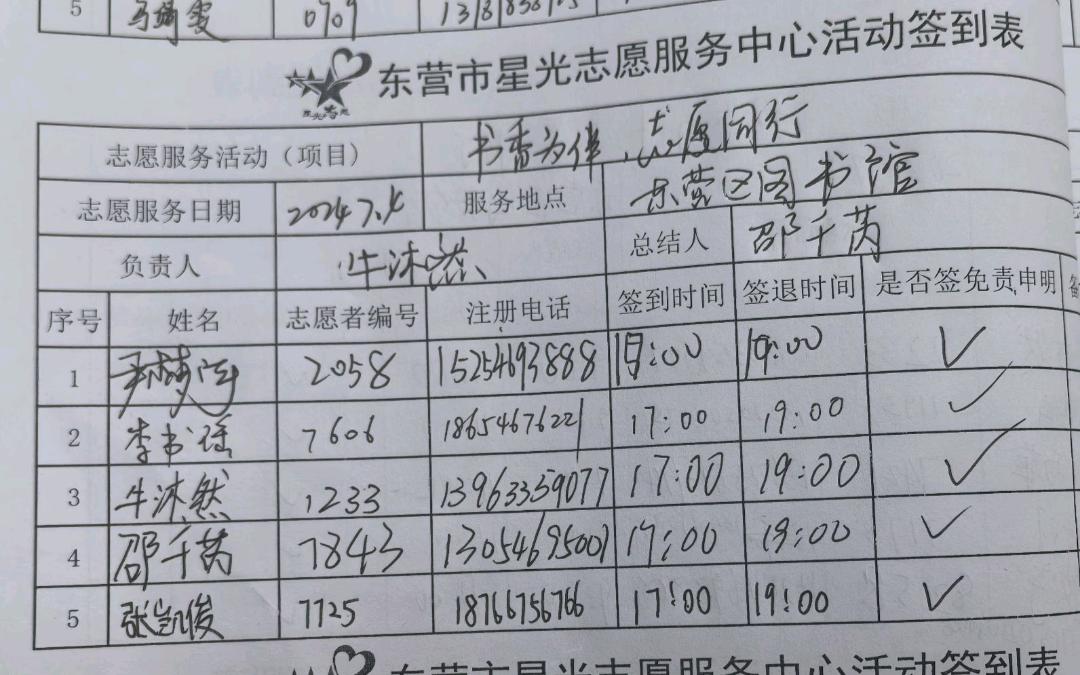 5 0909
东营市星光志愿服务中心活动签到表
志愿服务活动（项目） 书香为伴，志愿同行
志愿服务日期 2024.7.4 服务地点 东营区图书馆
负责人 牛沐然 总结人 邵千芮
序号 姓名 志愿者编号 注册电话 签到时间 签退时间 是否签免责申明
1 2058 15254693888 17:00 19:00 ✓
2 李书瑶 7606 18654676221 17:00 19:00 ✓
3 牛沐然 1233 13963359077 17:00 19:00 ✓
4 邵千芮 7843 13054695001 17:00 19:00 ✓
5 张凯俊 7725 18766756766 17:00 19:00 ✓
东营市星光志愿服务中心活动签到表